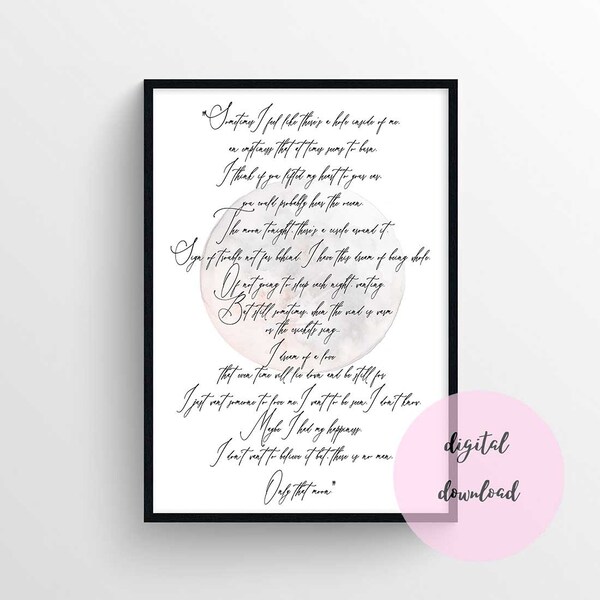 "Sometimes I feel like there's a hole inside of me,
an emptiness that at times seems to burn.
I think if you lifted my heart to your ear,
you could probably hear the ocean.
The moon tonight, there's a circle around it.
Sign of trouble not far behind. I have this dream of being whole.
Of not going to sleep each night, wanting.
But still sometimes, when the wind is warm
or the crickets sing...
I dream of a love
that even time will lie down and be still for.
I just want someone to love me. I want to be seen. I don't know.
Maybe I had my happiness.
I don't want to believe it but, there is no man.
Only that moon."
digital
download